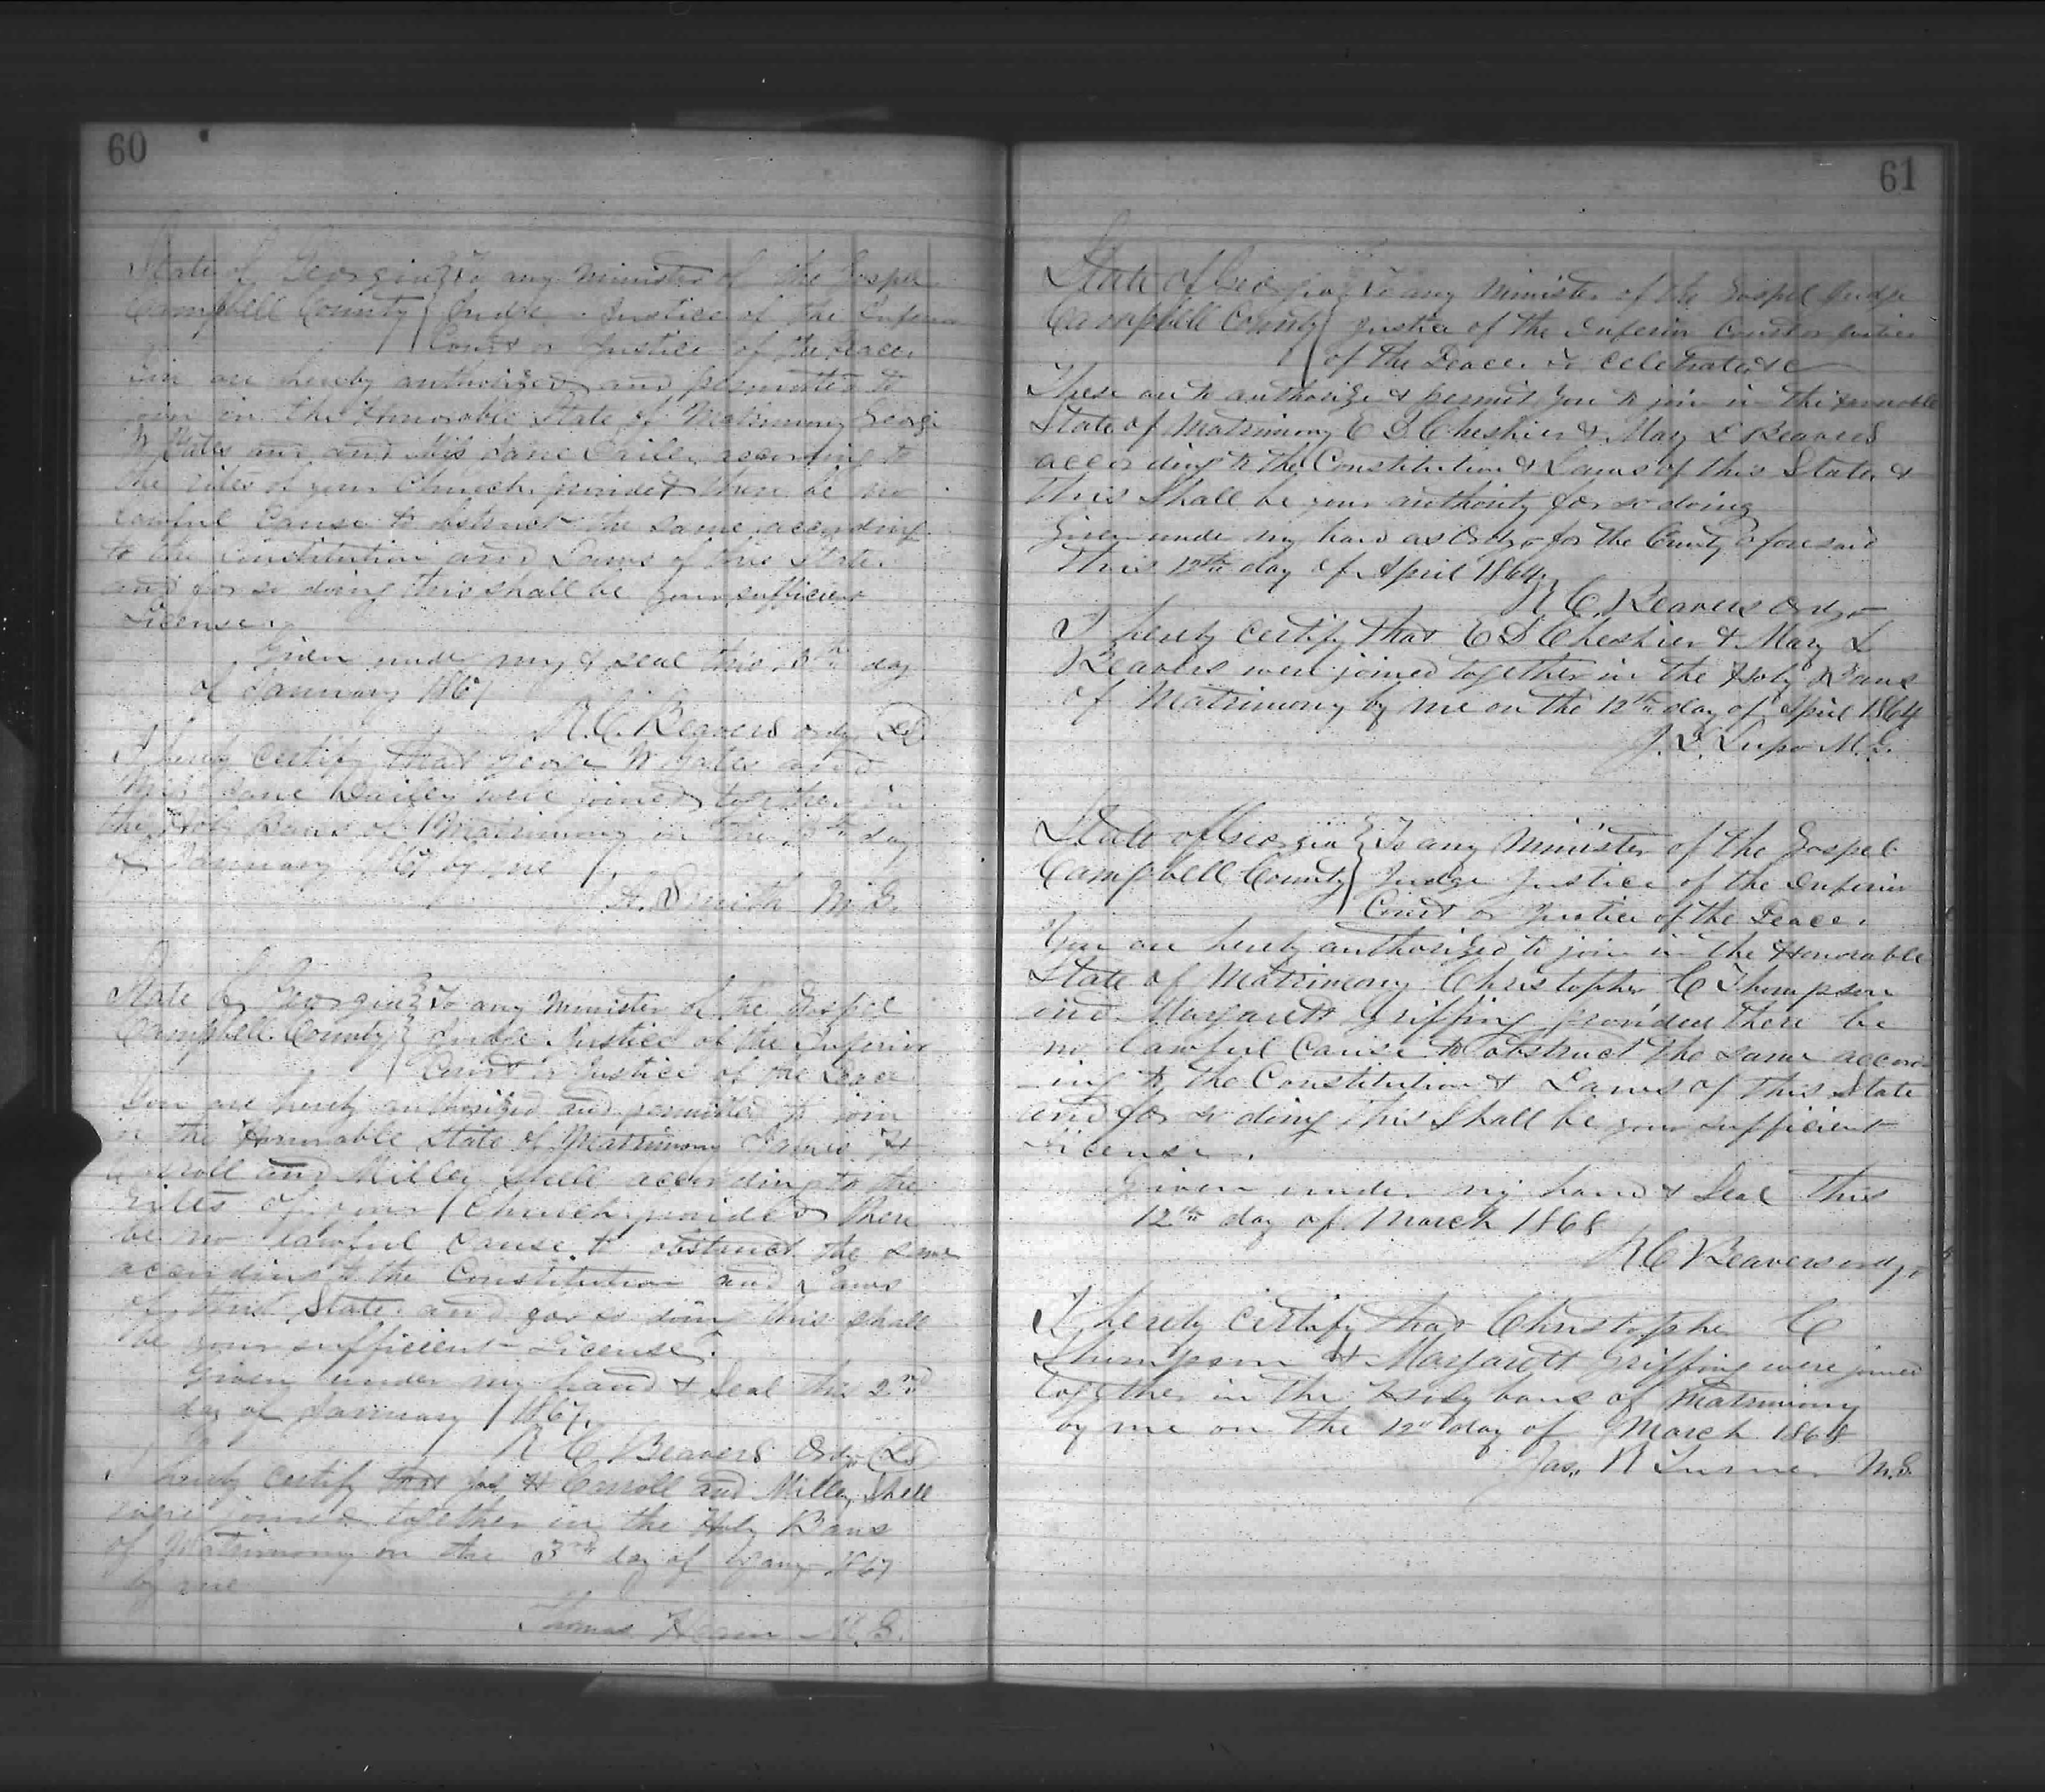 60
State of Georgia } To any Minister of the Gospel
Campbell County } Judge Justice of the Inferior
Court or Justice of the Peace.
You are hereby authorized and permitted to
join in the Honorable State of Matrimony George
W and Miss Jane according to
the rites of your Church provided there be no
lawful Cause to obstruct the same according
to the Constitution and Laws of this State.
and for so doing this shall be your sufficient
License.
Given under my & seal this day
of January 1867
R. C. Beavers Ordy LS
I hereby Certify that George W and
Miss Jane Dailey were joined together in
the Holy Bans of Matrimony on the day
of January 1867 by me
Smith M.G.
State of Georgia } To any Minister of the Gospel
Campbell County } Judge Justice of the Inferior
Court or Justice of the Peace
You are hereby authorized and permitted to join
in the Honorable State of Matrimony James H
Carroll and Milley Shell according to the
rites of your Church provided there
be no lawful Cause to obstruct the same
according to the Constitution and Laws
of this State. and for so doing this shall
be your sufficient License.
Given under my hand & Seal this 2nd
day of January 1867.
R C Beavers Ordy LS
I hereby Certify that Jas H Carroll and Milley Shell
were joined together in the Holy Bans
of Matrimony on the 3rd day of Jany 1867
by me
Thomas M. G.
61
State of Georgia } To any Minister of the Gospel Judge
Campbell County } Justice of the Inferior Court or Justice
of the Peace to celebrate &c
These are to authorize & permit you to join in the Honorable
State of Matrimony C D Cheshier & Mary L Beavers
according to the Constitution & Laws of this State &
this Shall be your authority for so doing
Given under my hand as Ordy for the County aforesaid
this 12th day of April 1864
R C. Beavers Ordy
I hereby Certify that C D Cheshier & Mary L
Beavers were joined together in the Holy Bans
of Matrimony by me on the 12th day of April 1864
J. L. Lupo M.G.
State of Georgia } To any Minister of the Gospel
Campbell County } Judge Justice of the Inferior
Court or Justice of the Peace.
You are hereby authorized to join in the Honorable
State of Matrimony Christopher C Thompson
and Margarett Griffing provided there be
no lawful Cause to obstruct the same accord-
ing to the Constitution & Laws of this State
and for so doing this Shall be your sufficient
License.
Given under my hand & Seal this
12th day of March 1868
R C Beavers ordy
I hereby Certify that Christopher C
Thompson & Margarett Griffing were joined
together in the Holy bans of Matrimony
by me on the 12th day of March 1868
Jas. R Turner M.G.